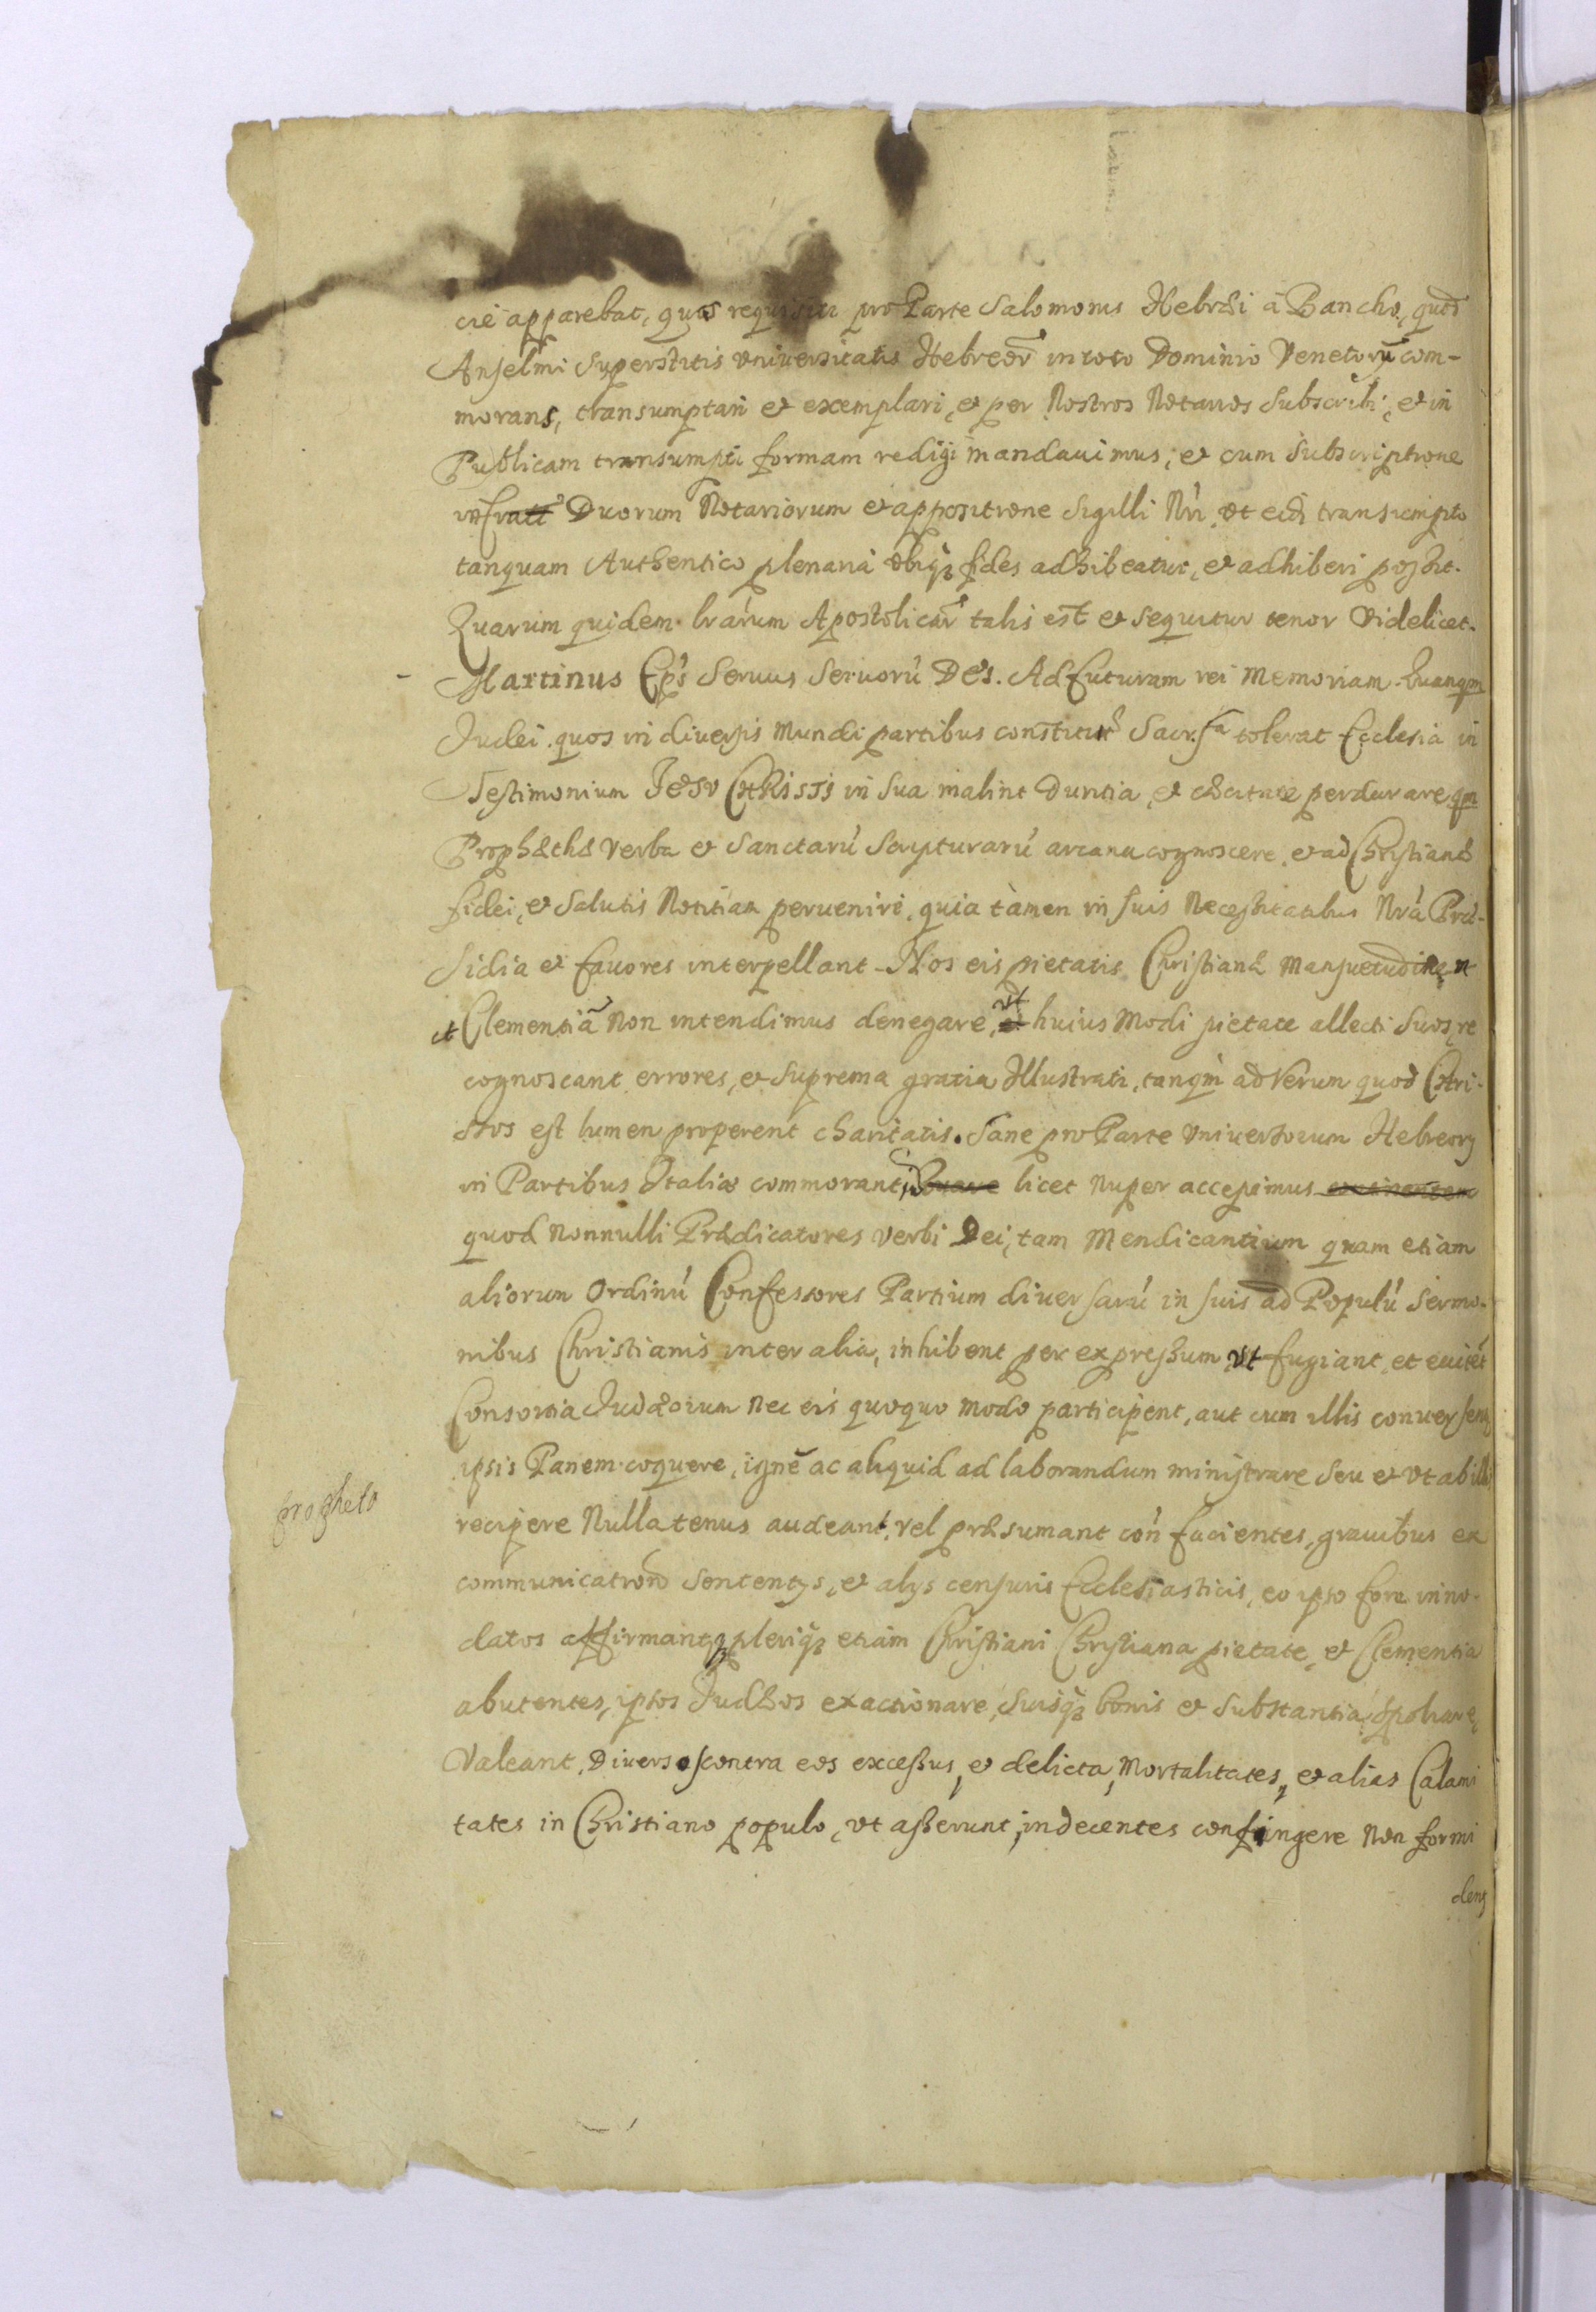 cie apparebat, quas requisiti pro Parte Salomonis Hebræi à Bancho, quod
Anselmi Superstitis Vniversitatis Hebreor in toto Dominio Venetorũ com-
morans, transumptari et exemplari, et per Nostros Notarios Subscribi, et in
Publicam transumpti formam redigi mandauimus, et cum Subscriptione
infratt Duorum Notariorum et appositione Sigilli Nri, Vt eid transumpto
tanquam Authentico plenaria vbiq fides adhibeatur, et adhiberi possit.
Quarum quidem lrarum Apostolicar talis est et sequitur tenor Videlicet.
Martinus Eps Seruus Seruorú Dei. Ad futuram rei Memoriam. Quanqm
Judei quos in diuersis Mundi partibus constitut Sacr.ta tolerat Ecclesia in
Testimonium IESV CHRISTI in Sua malint Duritia, et perdurare qm
Prophæthæ Verba et Sanctarú Scripturarú arcana cognoscere, et ad Christianæ
fidei, et Salutis Notitiam peruenire, quia tàmen in suis Necessitatibus Nrà Præ-
sidia et fauores interpellant. Nos eis pietatis Christianæ Mansuetudinem
et Clementiã Non intendimus denegare, vt huius Modi pietate allecti Suos re
cognoscant errores, et Suprema gratia Illustrati, tanqm ad Verum quod Chri-
stos est lumen properent charitatis. Sane pro Parte Vniuersorum Hebreorq
in Partibus Italiæ commoranti, licet nuper accepimus
quod Nonnulli Prædicatores verbi Dei, tam Mendicantium quam etiam
aliorum Ordinú Confessores Partium diuersarú in suis ad Populú Sermo-
nibus Christianis inter alia, inhibent per expressum, vt fugiant, et euitẽt
Consortia Judæorum Nec eis quoquo Modo participent, aut cum illis conuersent
ipsis Panem coquere, ignẽ ac aliquid ad laborandum ministrare Seu et Vt ab illis
propheto
recipere Nullatenus audeant, vel præsumant cón facientes, grauibus ex
communication Sententijs, et alijs censuris Ecclesiasticis, eo ipso fore inno-
datos affirmant, pleriq etiam Christiani Christiana pietate, et Clementia
abutentes, ipsos Judæos exactionare, Suisq bonis et Substantia Spoliare
Valeant, Diversos contra eos excessus, et delicta, Mortalitates, et alias Calami
tates in Christiano populo, vt asserunt, indecentes confingere Non formi
dent